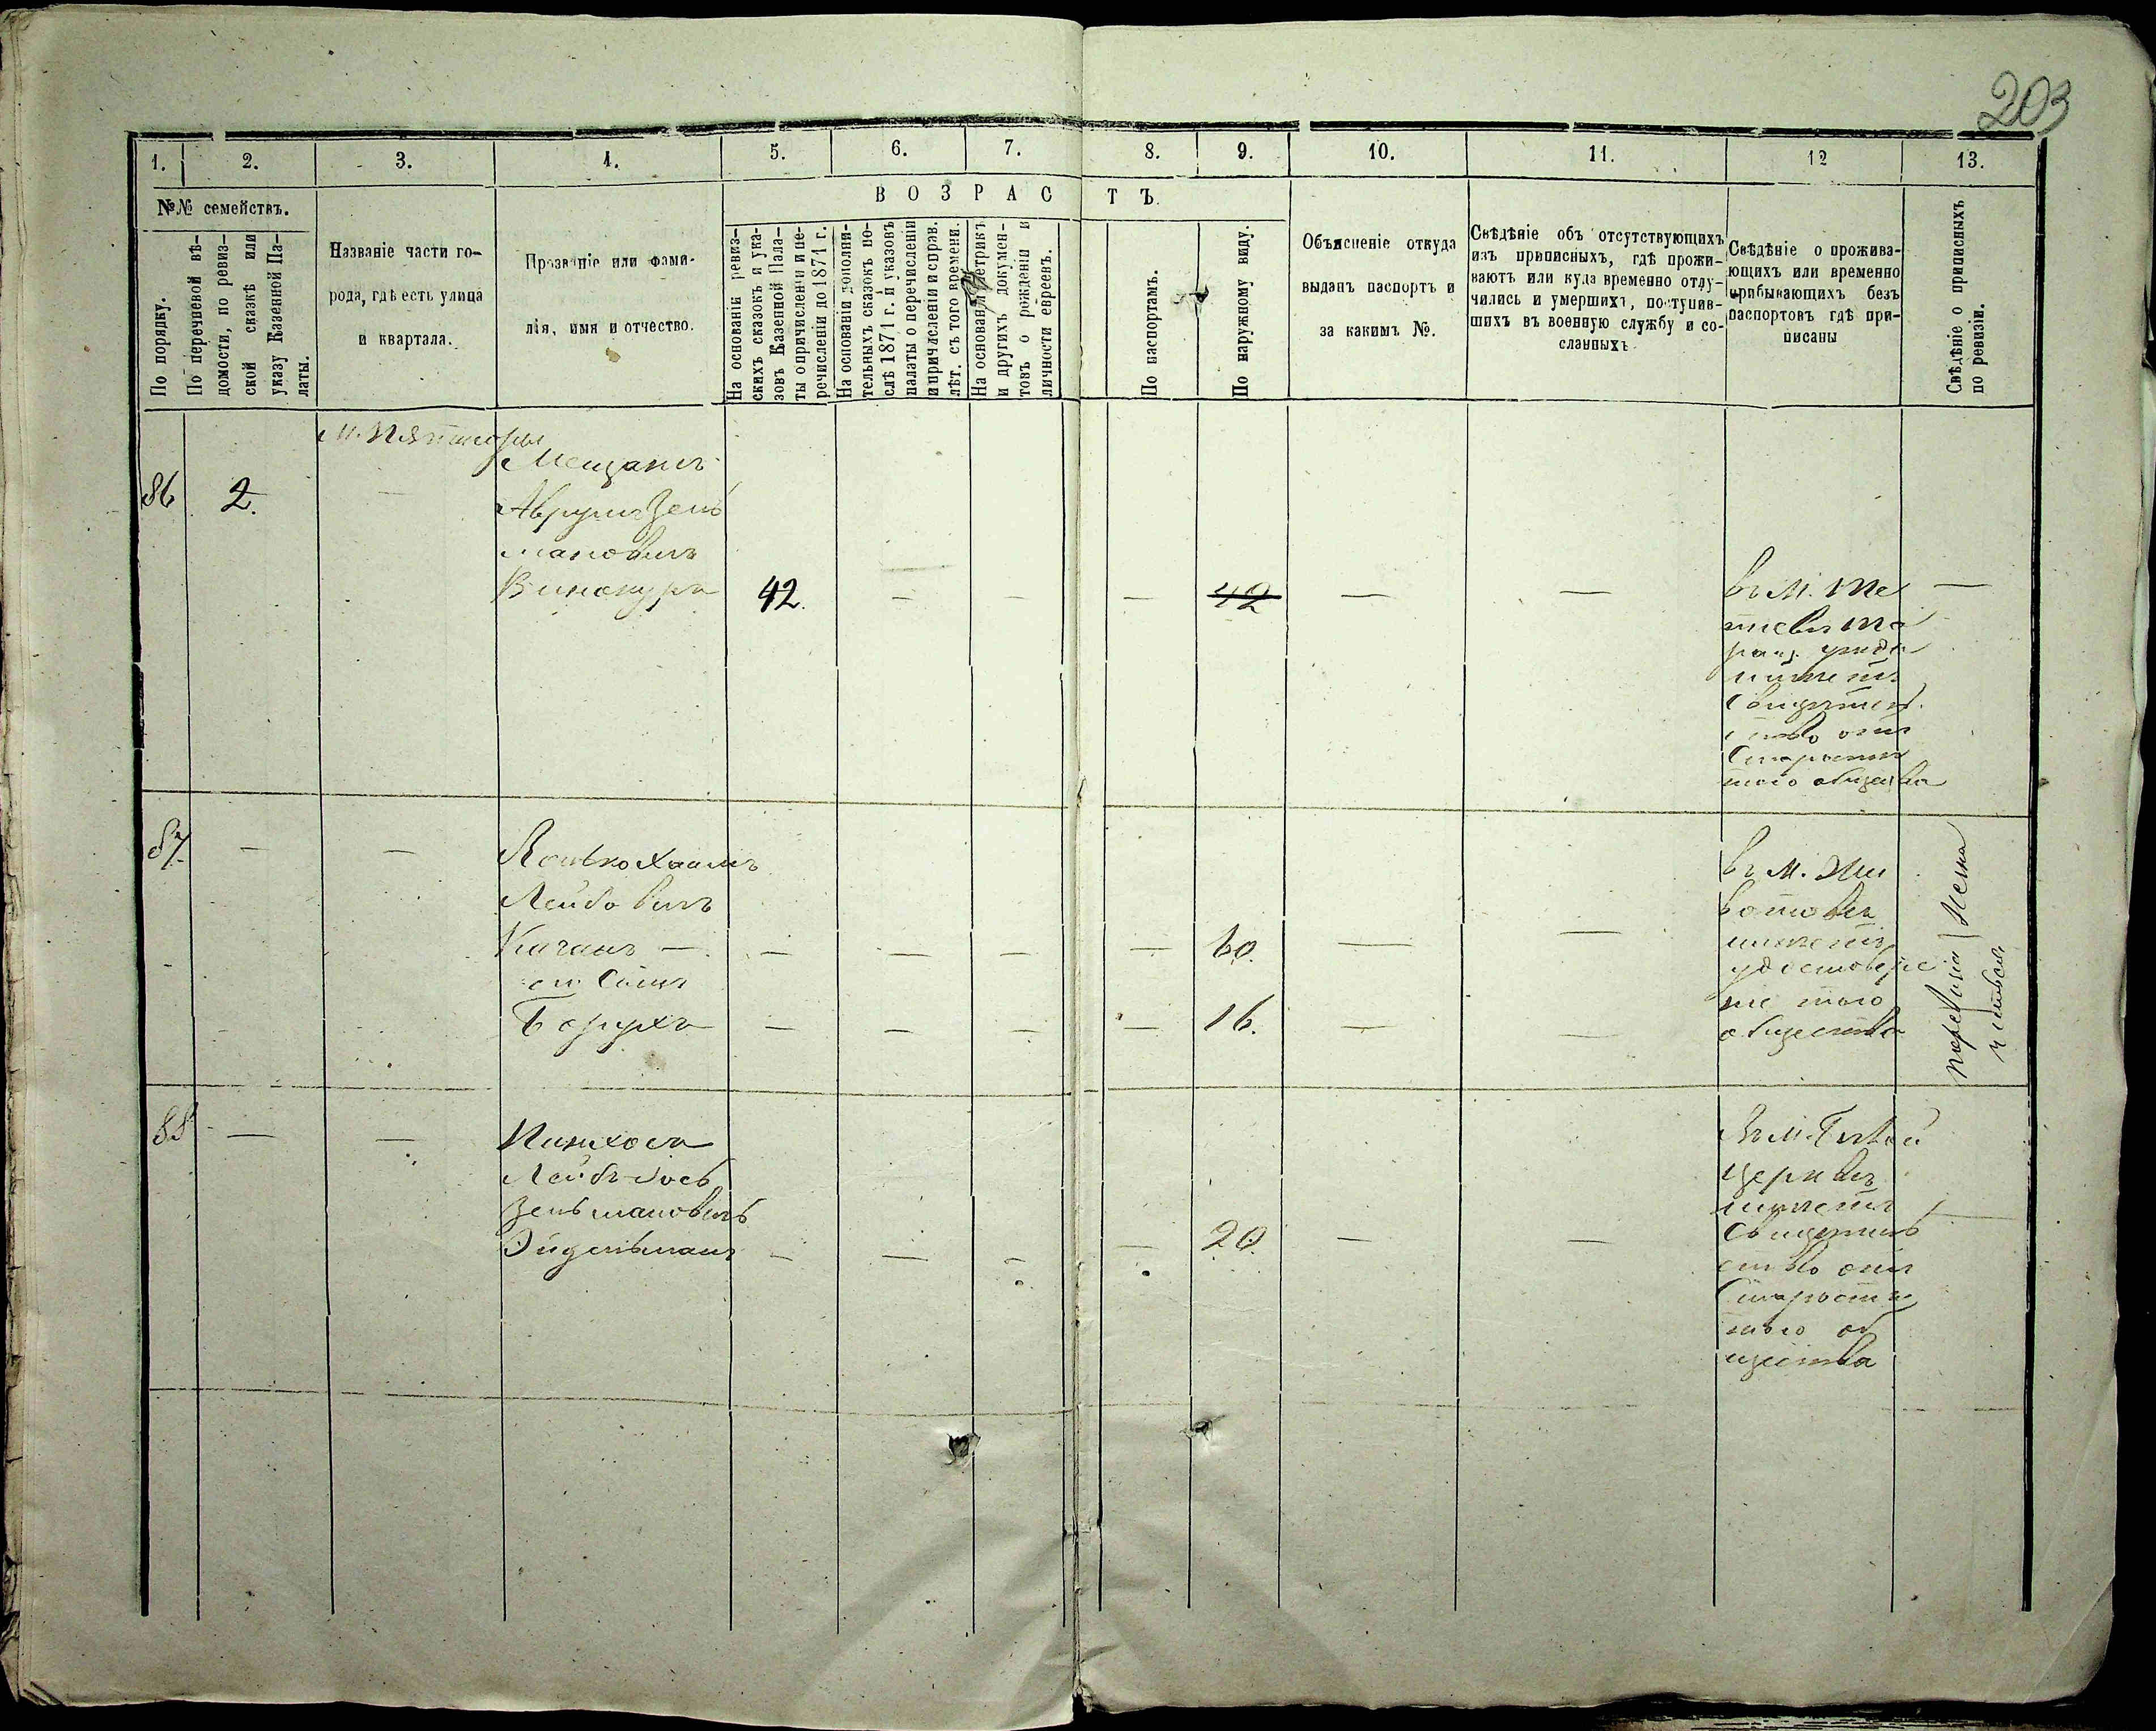 203
1. 2. 3. 4. 5. 6. 7. 8. 9. 10. 11. 12 13.
№№ семействъ.
ВОЗРАСТЪ.
По порядку.
По перечневой вѣ-
домости, по ревиз-
ской сказкѣ или
указу Казенной Па-
латы.
Названіе части го-
рода, гдѣ есть улица
и квартала.
Прозваніе или фами-
лія, имя и отчество.
На основаніи ревиз-
скихъ сказокъ и ука-
зовъ Казенной Пала-
ты о причисленіи и пе-
речисленіи до 1871 г.
На основаніи дополни-
тельныхъ сказокъ по-
слѣ 1871 г. и указовъ
палаты о перечисленіи
и причисленіи и справ.
лѣт. съ того времени.
На основаніи метрикъ
и другихъ докумен-
товъ о рожденіи и
личности евреевъ.
По паспортамъ.
По наружному виду.
Объясненіе откуда
выданъ паспортъ и
за какимъ №.
Свѣдѣніе объ отсутствующихъ
изъ приписныхъ, гдѣ прожи-
ваютъ или куда временно отлу-
чились и умершихъ, поступив-
шихъ въ военную службу и со-
сланныхъ
Свѣдѣніе о прожива-
ющихъ или временно
прибывающихъ безъ
паспортовъ гдѣ при-
писаны
Свѣдѣніе о приписныхъ
по ревизіи.
м. Пятигоры
Мещанъ
86 2. — Аврумъ Зель
мановичъ
Винокуръ 42. — — — 42 — — —
въ м. Те
тіевѣ Та
ращ. уѣзда
имѣетъ
свидѣтель
ство отъ
Старосты
того общества
87. — — Йосько Хаимъ
Лейбовичъ
Каганъ — — — — — 60. — —
его Сынъ
Борухъ — — — — 16. — —
въ м. Жи
вотовѣ
имѣетъ
удостовѣре
ніе того
общества
88 — — Пинхосъ
Лейбъ Йось
Зельмановичъ
Эйдельманъ — — — — 20. — — —
Въ м. Бѣлой
Церквѣ
имѣетъ
Свидѣтель
ство отъ
Старосты
того об
щества